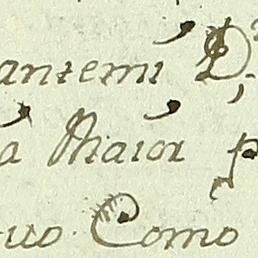 antemi D.
a Maior p
uo Como